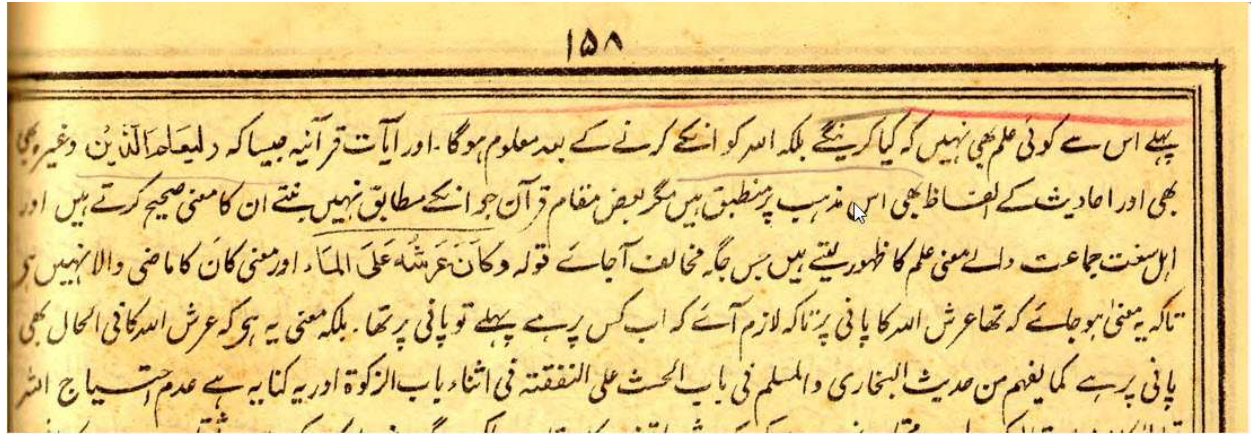 ۱۵۸
پہلے اس سے کوئی علم بھی نہیں کہ کیا کرینگے بلکہ اللہ کو انکے کرنے کے بعد معلوم ہوگا۔ اور آیات قرآنیہ جیساکہ ولیعلم الذین وغیرہ بھی
بھی اور احادیث کے الفاظ بھی اس مذہب پر منطبق ہیں مگر بعض مقام قرآن جو انکے مطابق نہیں بنتے ان کا معنی صحیح کرتے ہیں اور
اہل سنت جماعت والے معنی علم کا ظہور لیتے ہیں جس جگہ مخالف آجائے قولہ وَکَانَ عَرْشُہٗ عَلَی الْمَاء اور معنی کَانَ کا ماضی والا نہیں ہی
تاکہ یہ معنیٰ ہوجائے کہ تھا عرش اللہ کا پانی پر تاکہ لازم آئے کہ اب کس پر ہے پہلے تو پانی پر تھا۔ بلکہ معنی یہ ہی کہ عرش اللہ کا فی الحال بھی
پانی پر ہے کما یفہم من حدیث البخاری والمسلم فی باب الحث علی النفقتہ فی اثناء باب الزکوۃ اور یہ کنایہ ہے عدم احتیاج اللہ